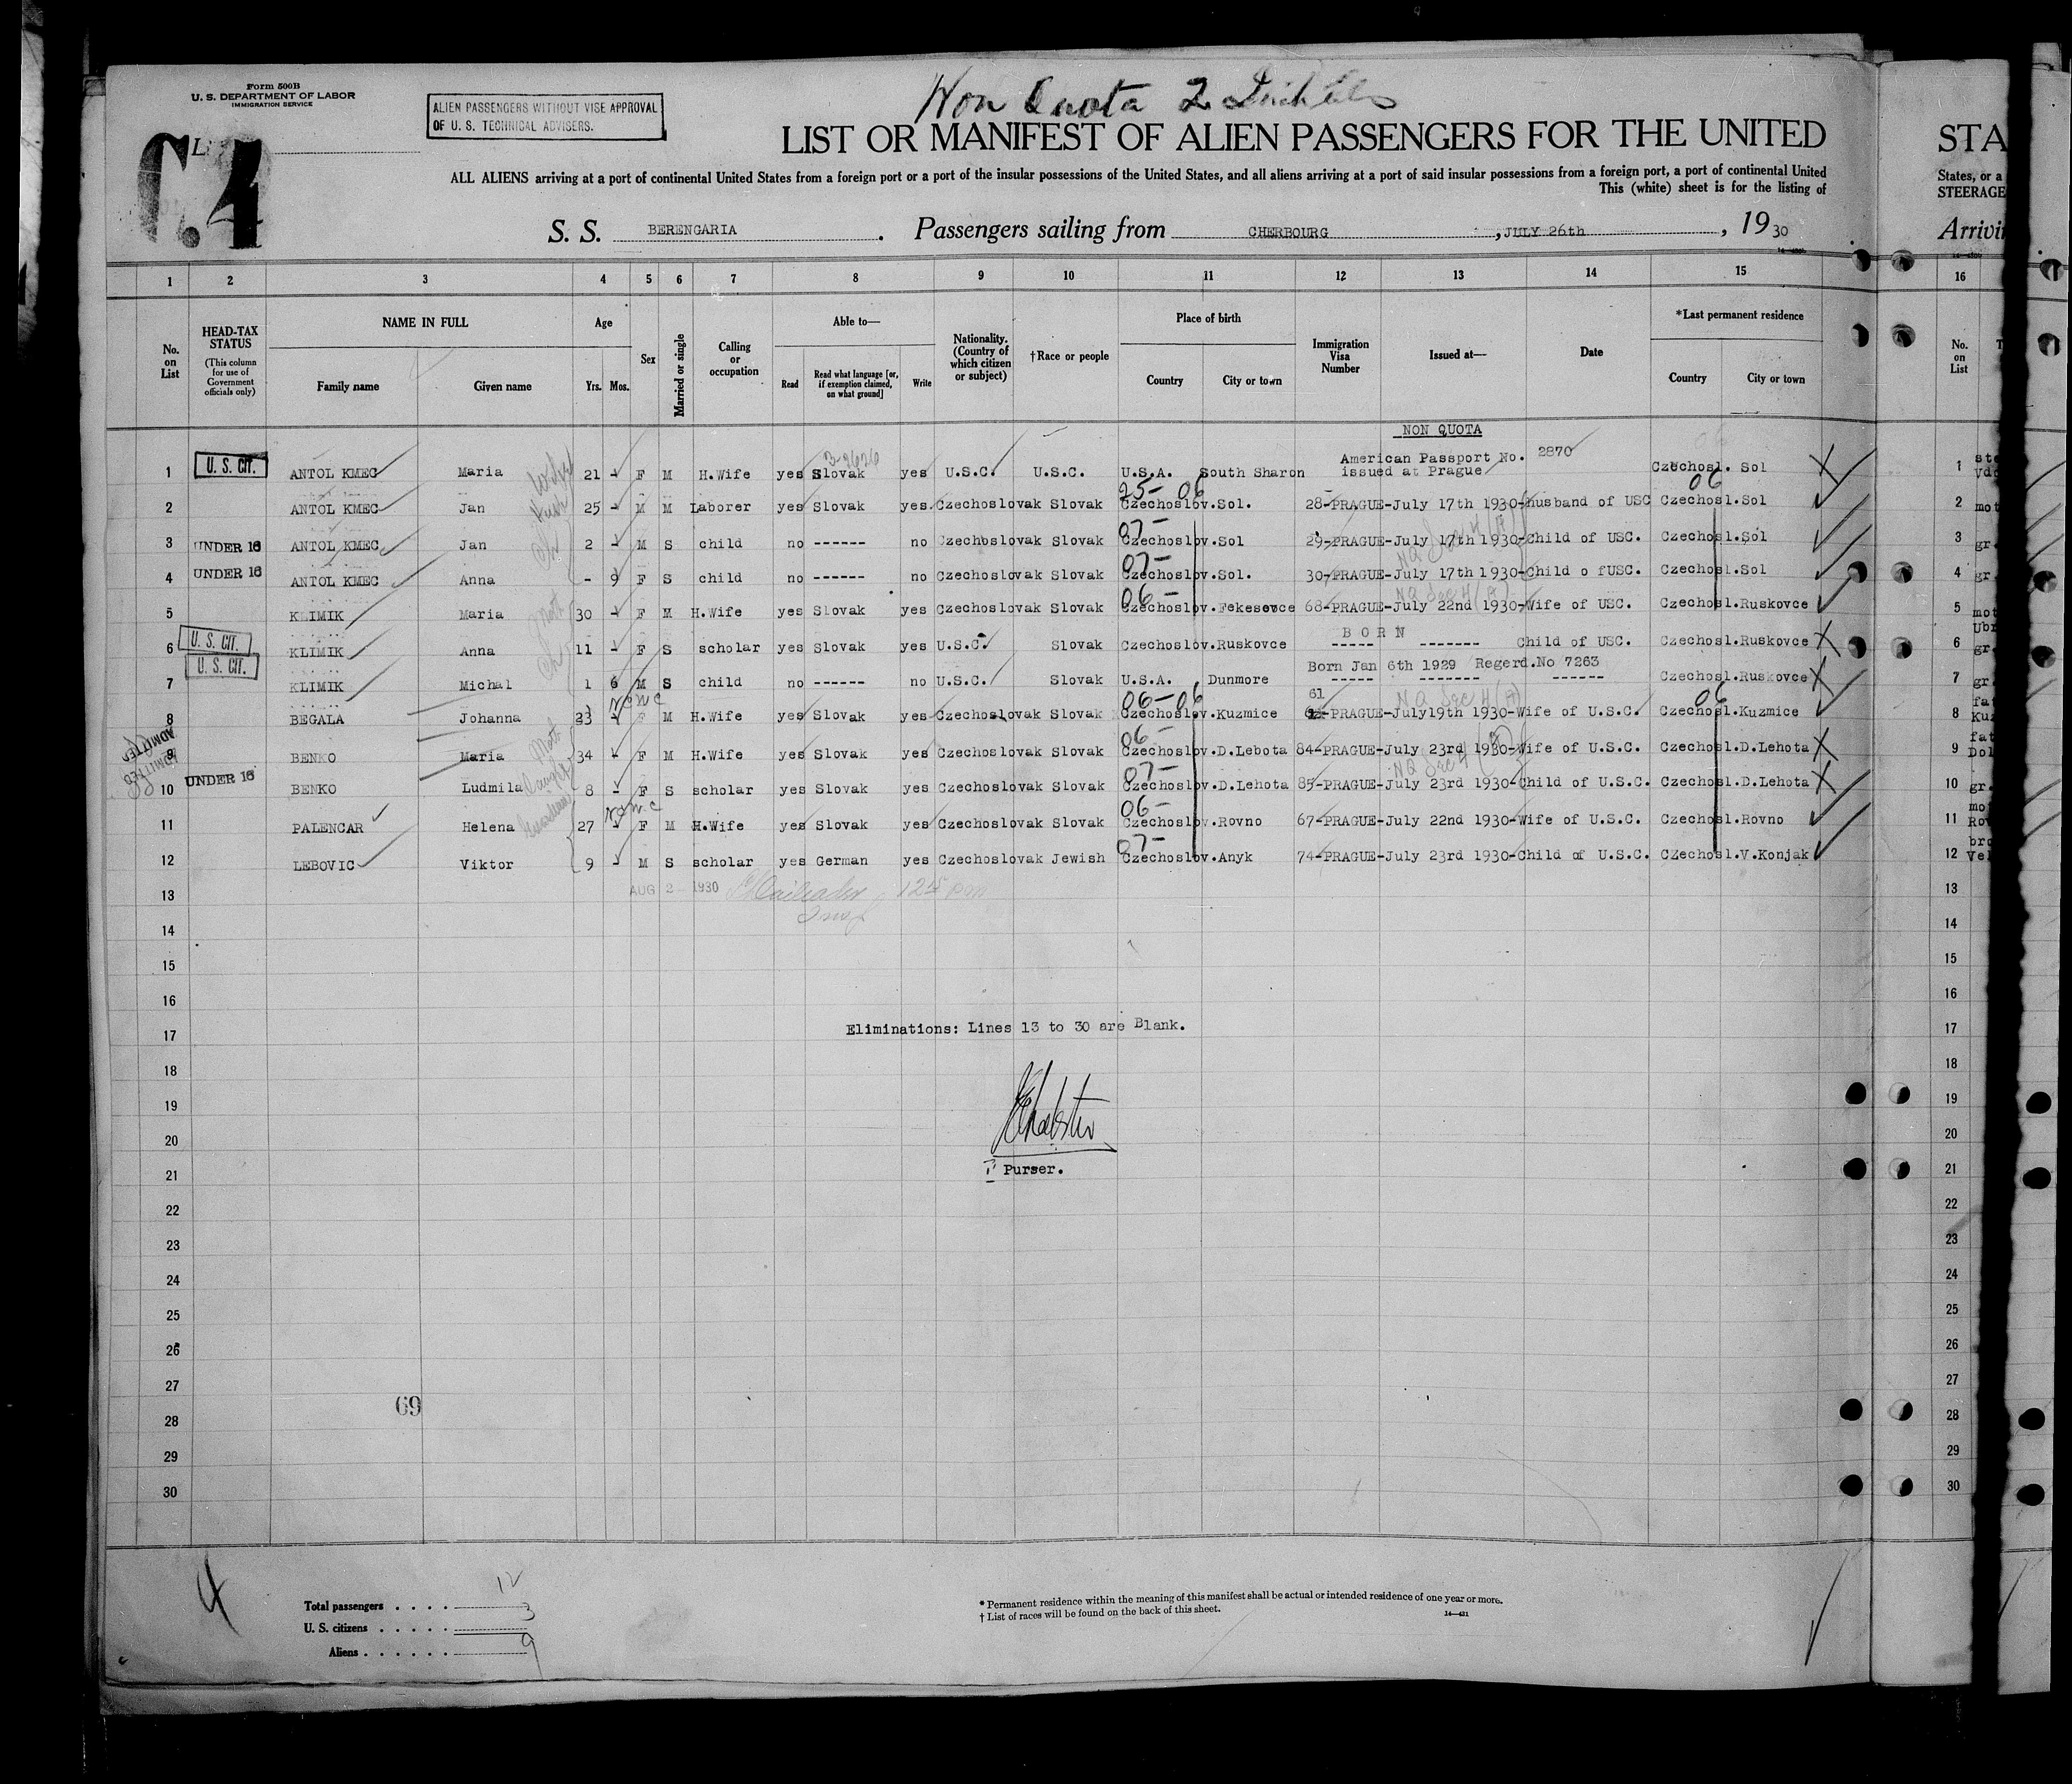 Form 500B
U. S. DEPARTMENT OF LABOR
IMMIGRATION SERVICE
ALIEN PASSENGERS WITHOUT VISE APPROVAL
OF U. S. TECHNICAL ADVISERS.
Non Quota 2
LIST OR MANIFEST OF ALIEN PASSENGERS FOR THE UNITED
STA
C.4
ALL ALIENS arriving at a port of continental United States from a foreign port or a port of the insular possessions of the United States, and all aliens arriving at a port of said insular possessions from a foreign port, a port of continental United
This (white) sheet is for the listing of
States, or a
STEERAGE
S. S. BERENGARIA. Passengers sailing from CHERBOURG, JULY 26th, 19 30
Arrivi
1 2 3 4 5 6 7 8 9 10 11 12 13 14 15 16
No. on List
HEAD-TAX STATUS
(This column for use of Government officials only)
NAME IN FULL
Family name Given name
Age
Yrs. Mos.
Sex
Married or single
Calling or occupation
Able to—
Read Read what language [or, if exemption claimed, on what ground] Write
Nationality. (Country of which citizen or subject)
†Race or people
Place of birth
Country City or town
Immigration Visa Number
Issued at—
Date
*Last permanent residence
Country City or town
No. on List
NON QUOTA
American Passport No. 2870
1 U. S. CIT. ANTOL KMEC Maria 21 - F M H.Wife yes Slovak yes U.S.C. U.S.C. U.S.A. South Sharon issued at Prague Czechosl. Sol 1
25- 06 06
2 ANTOL KMEC Jan 25 - M M Laborer yes Slovak yes Czechoslovak Slovak Czechoslov.Sol. 28-PRAGUE-July 17th 1930-husband of USC Czechosl.Sol 2 mot
07-
3 UNDER 16 ANTOL KMEC Jan 2 - M S child no ------ no Czechoslovak Slovak Czechoslov.Sol 29-PRAGUE-July 17th 1930-Child of USC. Czechosl.Sol 3 gr.
07-
4 UNDER 16 ANTOL KMEC Anna - 9 F S child no ------ no Czechoslovak Slovak Czechoslov.Sol. 30-PRAGUE-July 17th 1930-Child o fUSC. Czechosl.Sol 4 gr.
06-
5 KLIMIK Maria 30 - F M H.Wife yes Slovak yes Czechoslovak Slovak Czechoslov.Fekesevce 68-PRAGUE-July 22nd 1930-Wife of USC. Czechosl.Ruskovce 5 mot
BORN
6 U. S. CIT. KLIMIK Anna 11 - F S scholar yes Slovak yes U.S.C. Slovak Czechoslov.Ruskovce ----- ------- Child of USC. Czechosl.Ruskovce 6 gr.
Born Jan 6th 1929 Regerd.No 7263
7 U. S. CIT. KLIMIK Michal 1 6 M S child no ------ no U.S.C. Slovak U.S.A. Dunmore ----- ------- ------ Czechosl.Ruskovce 7 gr.
none 06-06 61 06
8 BEGALA Johanna 23 - F M H.Wife yes Slovak yes Czechoslovak Slovak Czechoslov.Kuzmice PRAGUE-July19th 1930-Wife of U.S.C. Czechosl.Kuzmice 8
06-
ADMITTED
9 BENKO Maria 34 - F M H.Wife yes Slovak yes Czechoslovak Slovak Czechoslov.D.Lebota 84-PRAGUE-July 23rd 1930-Wife of U.S.C. Czechosl.D.Lehota 9
ADMITTED
07-
10 UNDER 16 BENKO Ludmila 8 - F S scholar yes Slovak yes Czechoslovak Slovak Czechoslov.D.Lehota 85-PRAGUE-July 23rd 1930-Child of U.S.C. Czechosl.D.Lehota 10 gr.
none 06-
11 PALENCAR Helena 27 - F M H.Wife yes Slovak yes Czechoslovak Slovak Czechoslov.Rovno 67-PRAGUE-July 22nd 1930-Wife of U.S.C. Czechosl.Rovno 11
07-
12 LEBOVIC Viktor 9 - M S scholar yes German yes Czechoslovak Jewish Czechoslov.Anyk 74-PRAGUE-July 23rd 1930-Child of U.S.C. CZechosl.V.Konjak 12
AUG 2 - 1930
13 13
14 14
15 15
16 16
Eliminations: Lines 13 to 30 are Blank.
17 17
18 18
19 19
20 20
Purser.
21 21
22 22
23 23
24 24
25 25
26 26
27 27
69
28 28
29 29
30 30
4
Total passengers . . . . 12
U. S. citizens . . . . . 3
Aliens . . . . . . 9
* Permanent residence within the meaning of this manifest shall be actual or intended residence of one year or more.
† List of races will be found on the back of this sheet.